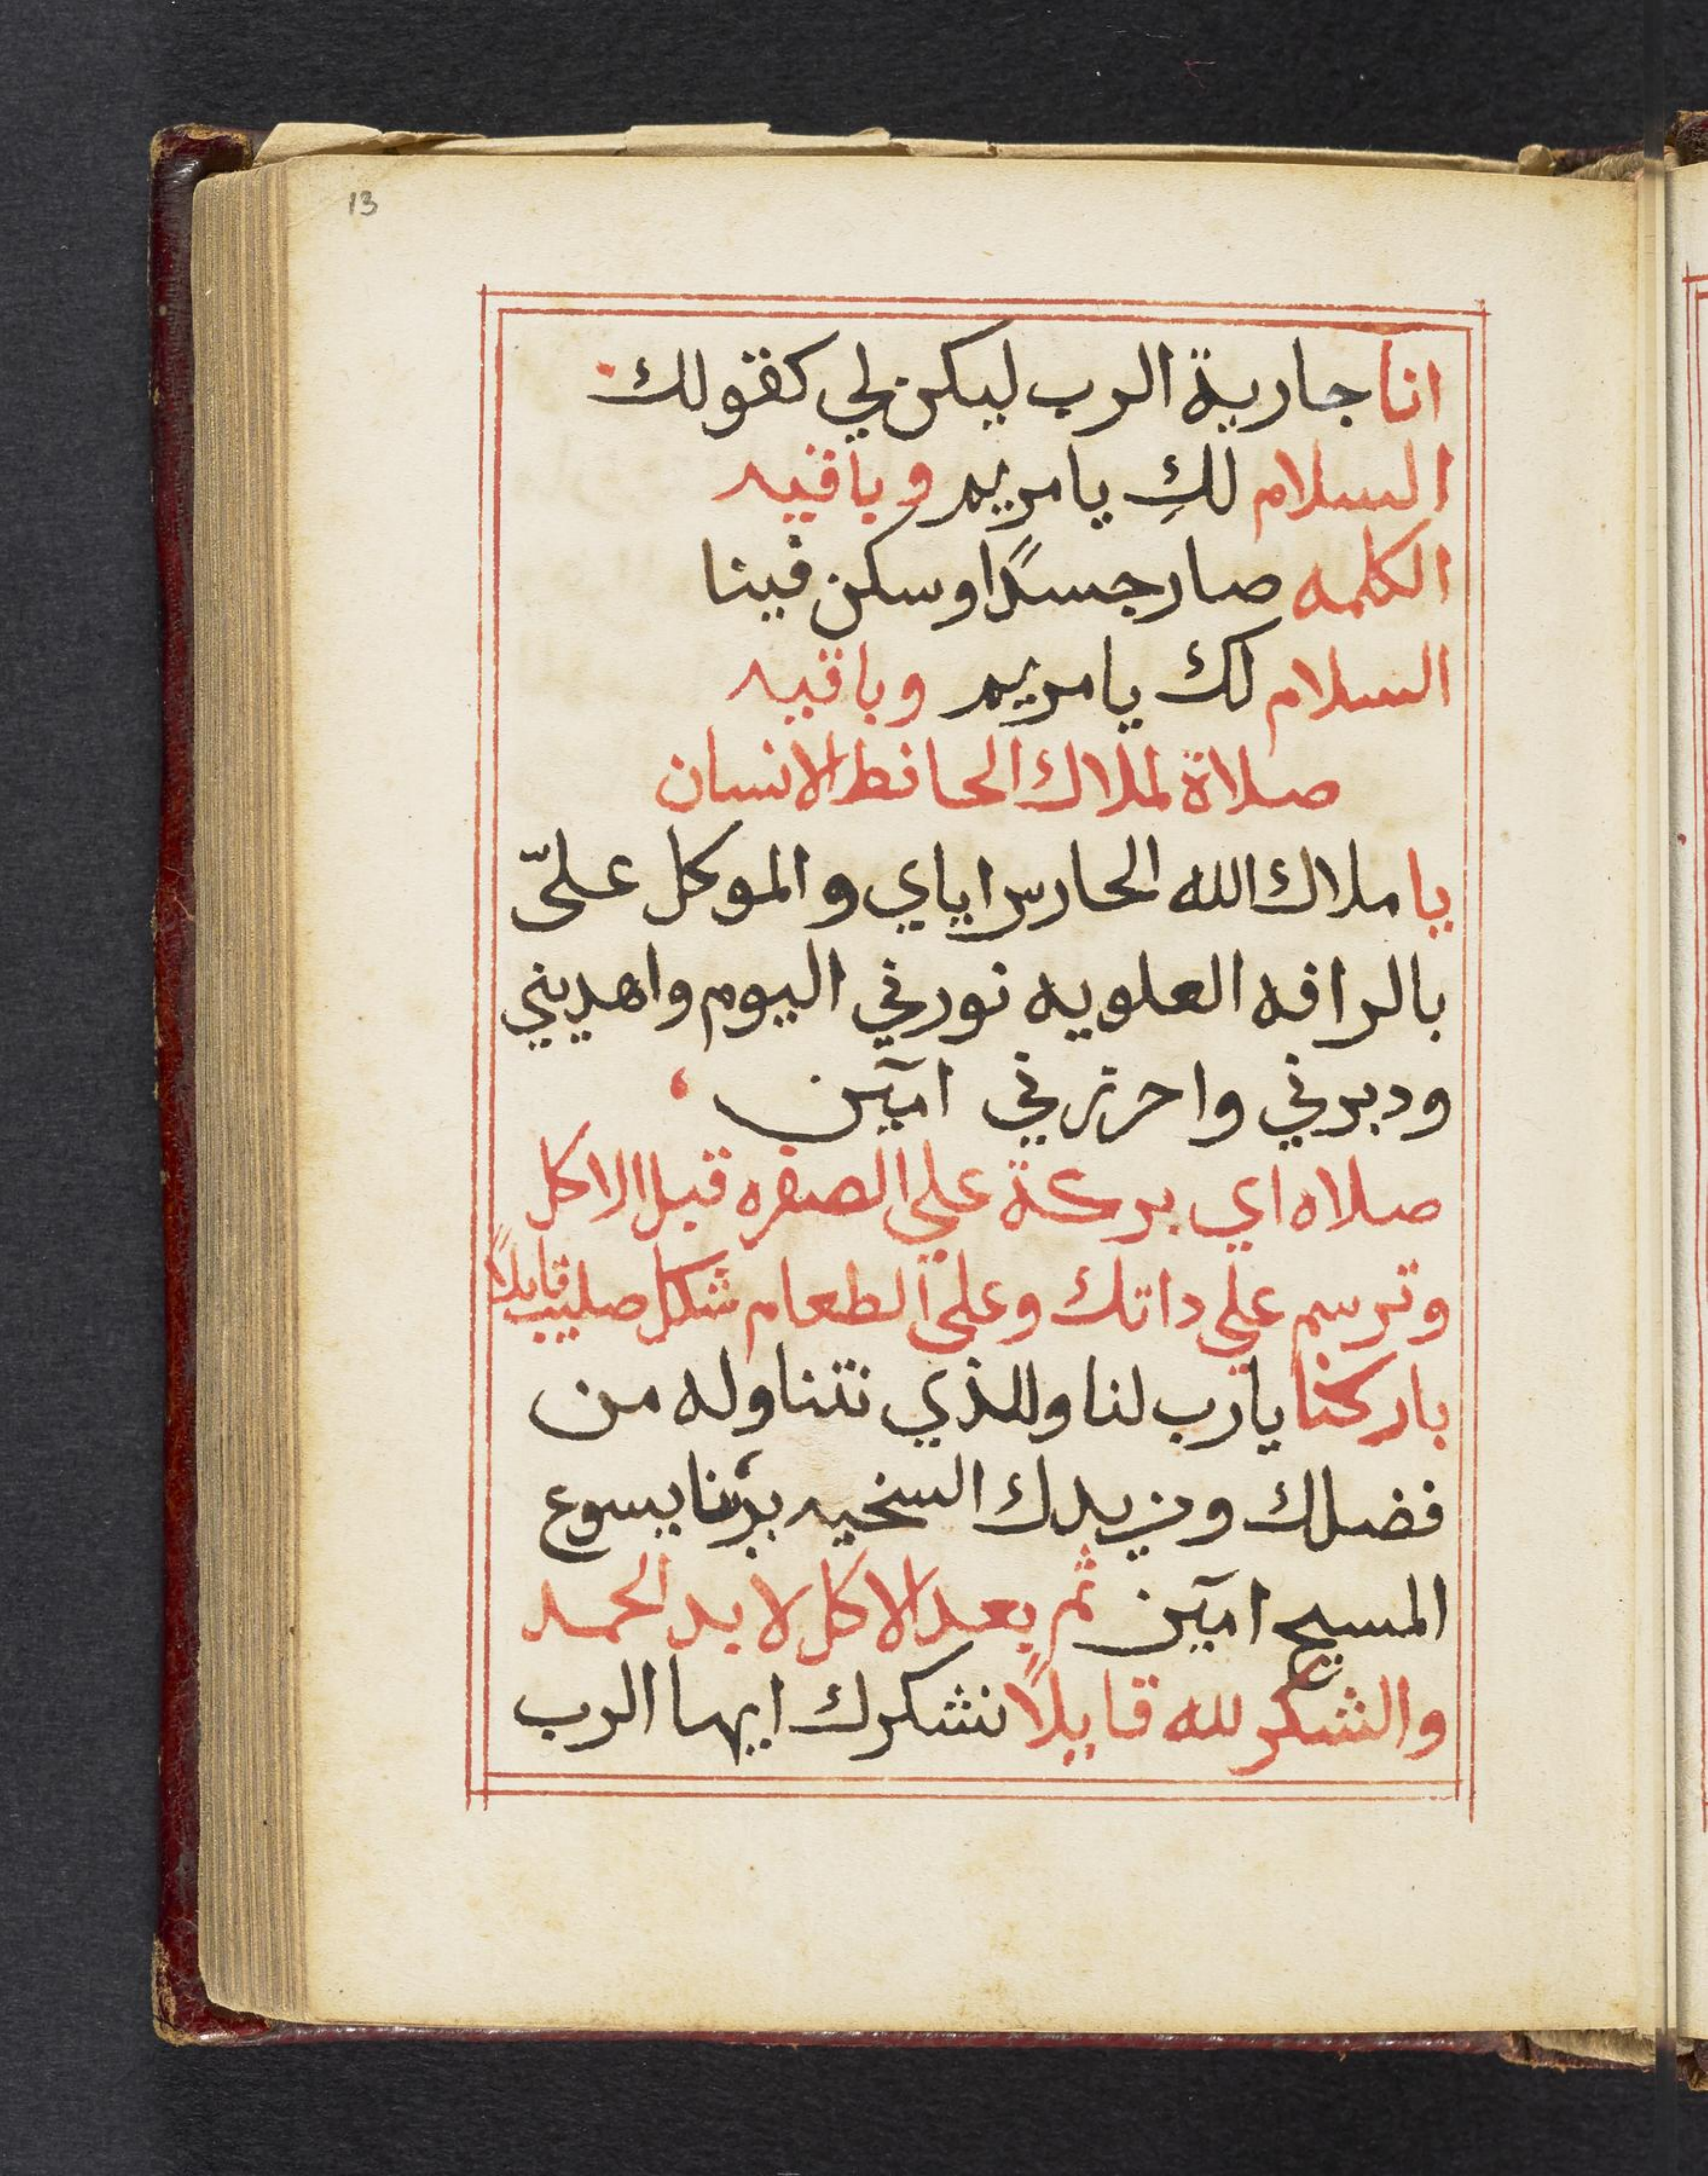 13
انا جارية الرب ليكن لي كقولك
السلام لكِ يا مريم وباقيه
الكلمه صار جسدًا وسكن فينا
السلام لك يا مريم وباقيه
صلاة لملاك الحافظ الانسان
يا ملاك الله الحارس اياي والموكل عليّ
بالرافه العلويه نورني اليوم واهديني
ودبرني واحرزني امين
صلاه اي بركة علي الصفره قبل الاكل
وترسم علي داتك وعلي الطعام شكل صليب قايلاً
باركنا يارب لنا وللذي نتناوله من
فضلك ومزيدك السخيه بربنا يسوع
المسيح امين ثم بعد الاكل لا بد الحمد
والشكر لله قايلاً نشكرك ايها الرب